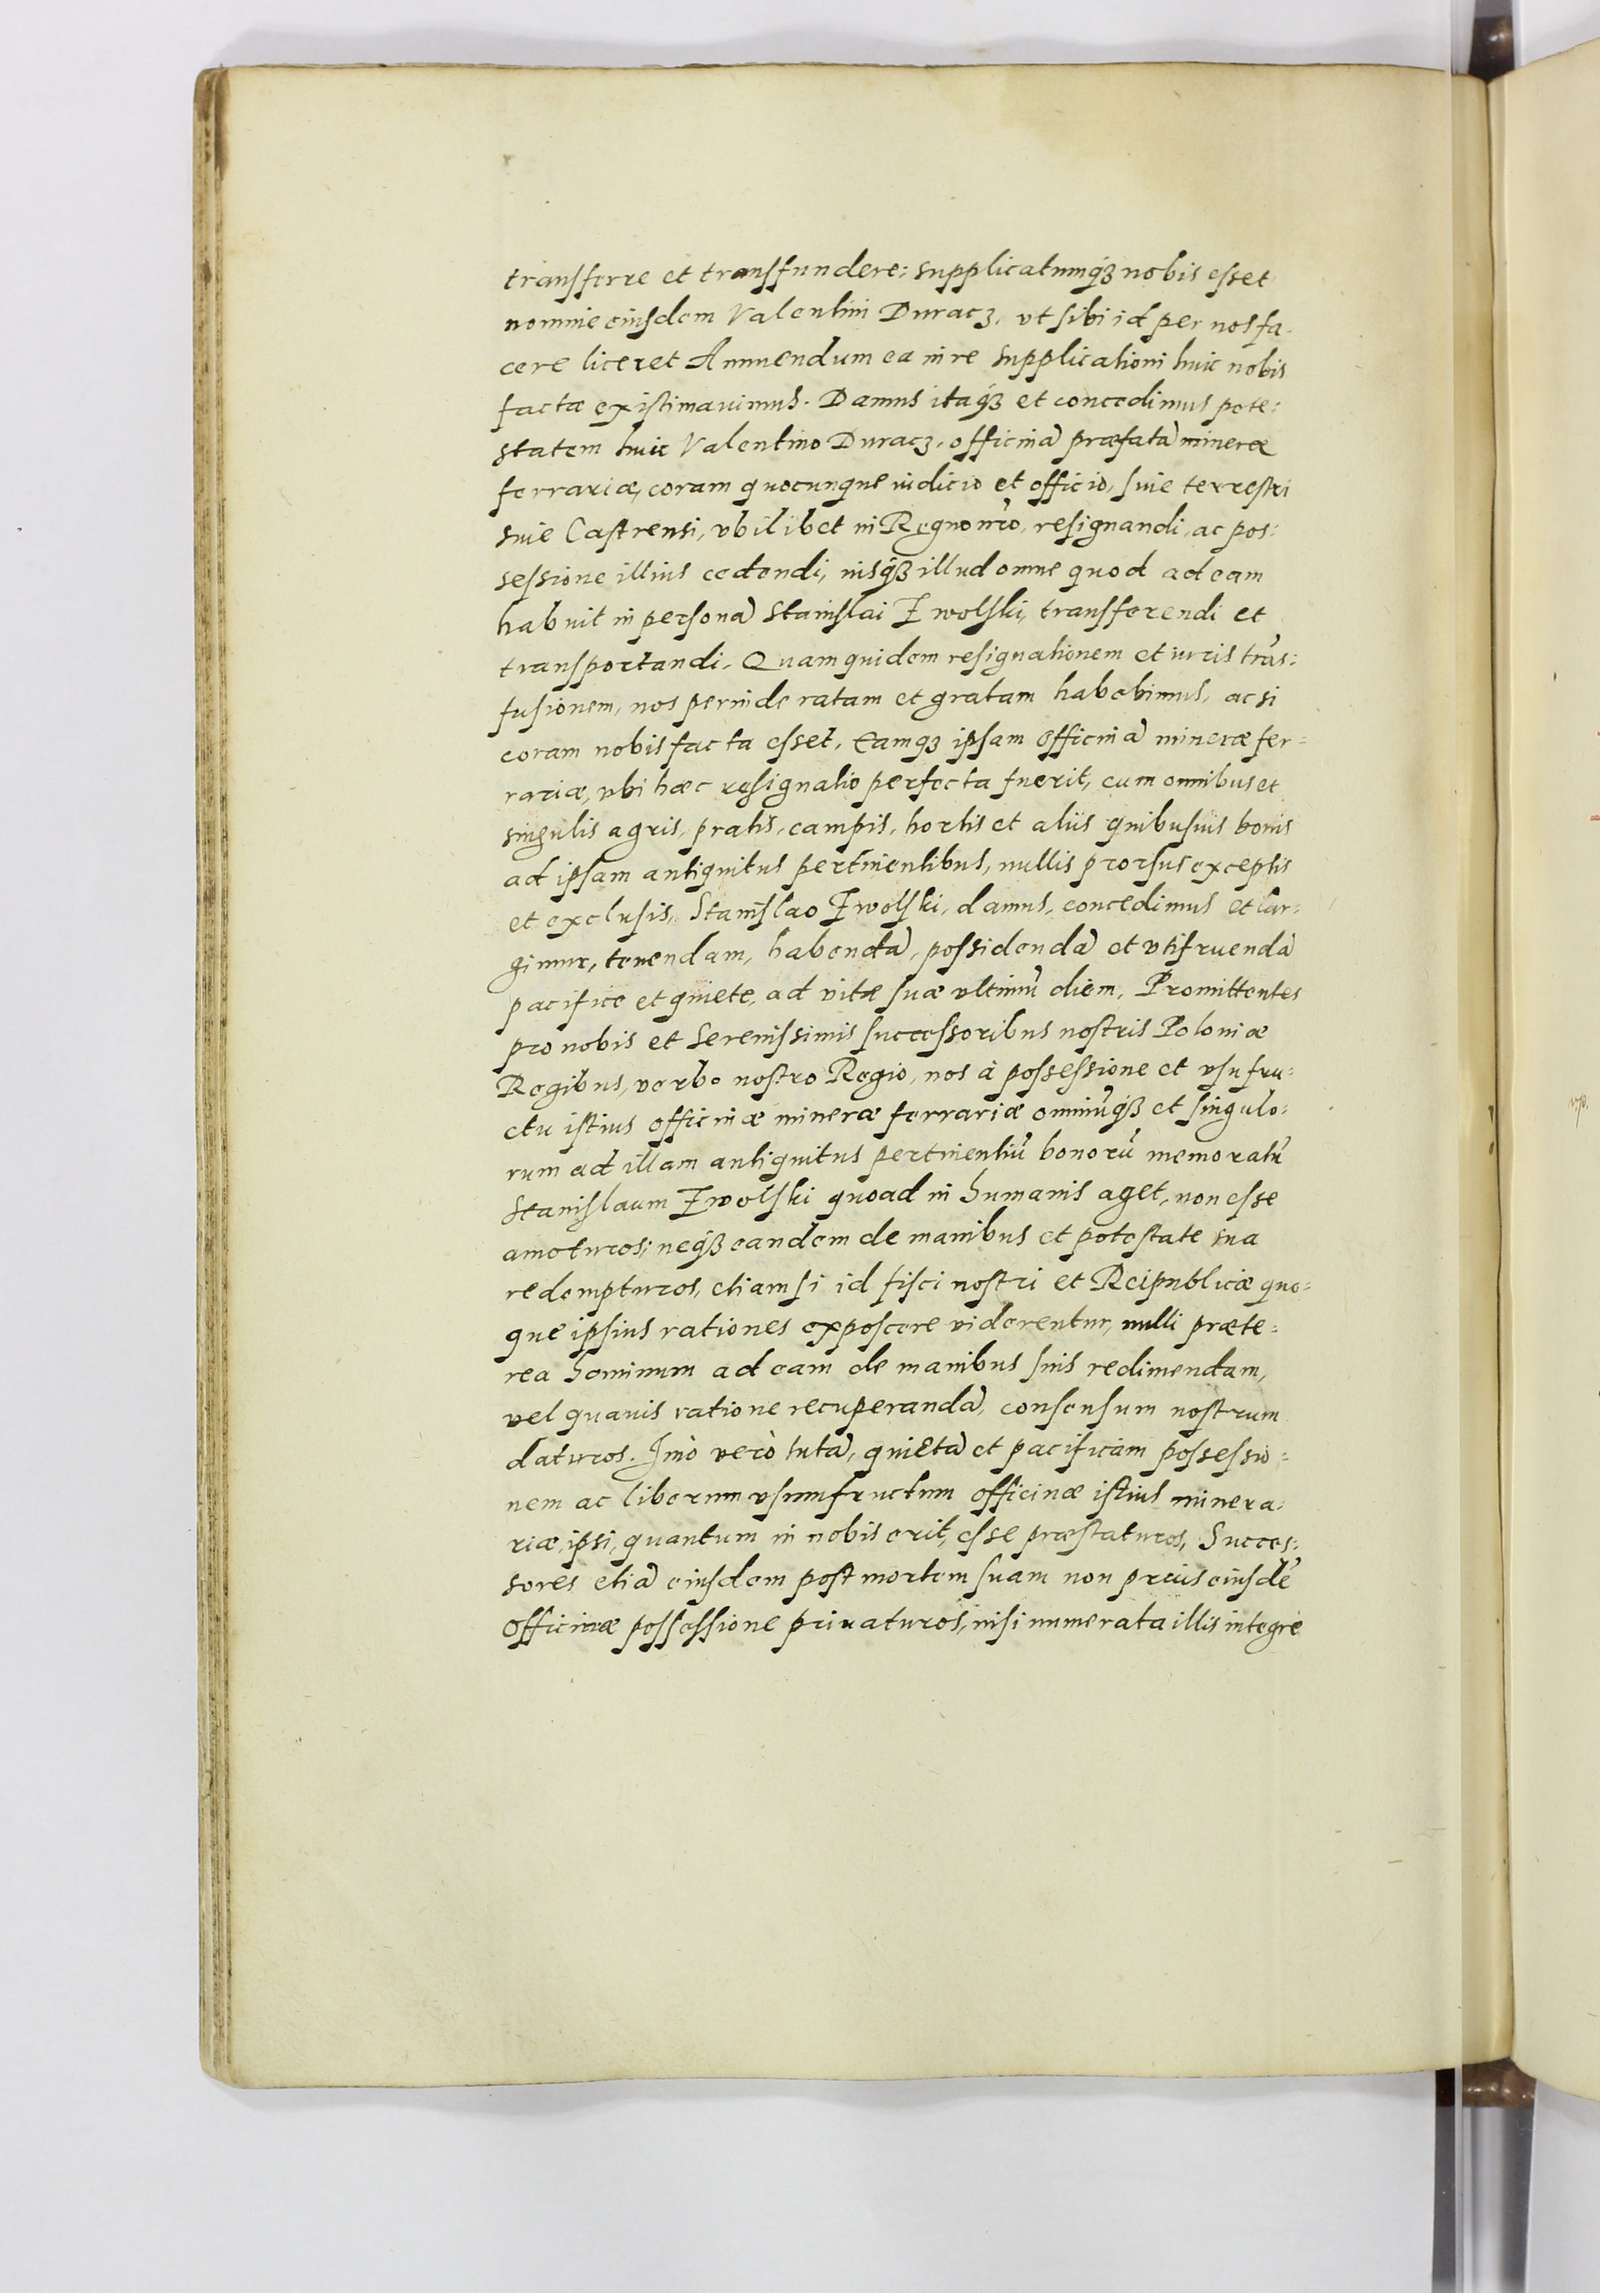 transferre et transfundere: supplicatumq́ꝫ nobis esset
nomine eiusdem Valentini Duracz, vt sibi id per nos fa-
cere liceret Annuendum ea in re supplicationi huic nobis
factæ existimauimus. Damus itaq́ꝫ et concedimus pote:
statem huic Valentino Duracz, officinã præfatã mineræ
ferrariæ, coram quocunque iudicio et officio, siue terrestri
siue Castrensi, vbilibet in Regno nr̃o, resignandi, ac pos:
sessione illius cedendi, iusq́ꝫ illud omne quod ad eam
habuit in personã Stanislai Zwolski, transferendi et
transportandi. Quam quidem resignationem et iuris trãs:
fusionem, nos perinde ratam et gratam habebimus, ac si
coram nobis facta esset. Eamqꝫ ipsam officinã mineræ fer=
rariæ, vbi hæc resignatio perfecta fuerit, cum omnibus et
singulis agris, pratis, campis, hortis et aliis quibusuis bonis
ad ipsam antiquitus pertinentibus, nullis prorsus exceptis
et exclusis, Stanislao Zwolski, damus, concedimus et lar=
gimur, tenendam, habendã, possidendã et vtifruendã
pacifice et quiete, ad vitæ suæ vltimũ diem. Promittentes
pro nobis et Serenissimis successoribus nostris Poloniæ
Regibus, verbo nostro Regio, nos à possessione et vsufru=
ctu istius officinæ mineræ ferrariæ omniũq́ꝫ et singulo:
rum ad illam antiquitus pertinentiũ bonorũ memoratũ
Stanislaum Zwolski quoad in humanis aget, non esse
amoturos; neq́ꝫ eandem de manibus et potestate sua
redempturos, etiam si id fisci nostri et Reipublicæ quo=
que ipsius rationes exposcere viderentur, nulli præte=
rea hominum ad eam de manibus suis redimendam,
vel quauis ratione recuperandã, consensum nostrum
daturos. Imò verò tutã, quietã et pacificam possessio=
nem ac liberum vsumfructum officinæ istius minera:
riæ, ipsi, quantum in nobis erit, esse præstaturos, Succes:
sores etiã eiusdem post mortem suam non prius eiusdẽ
officinæ possessione priuaturos, nisi numerata illis integre